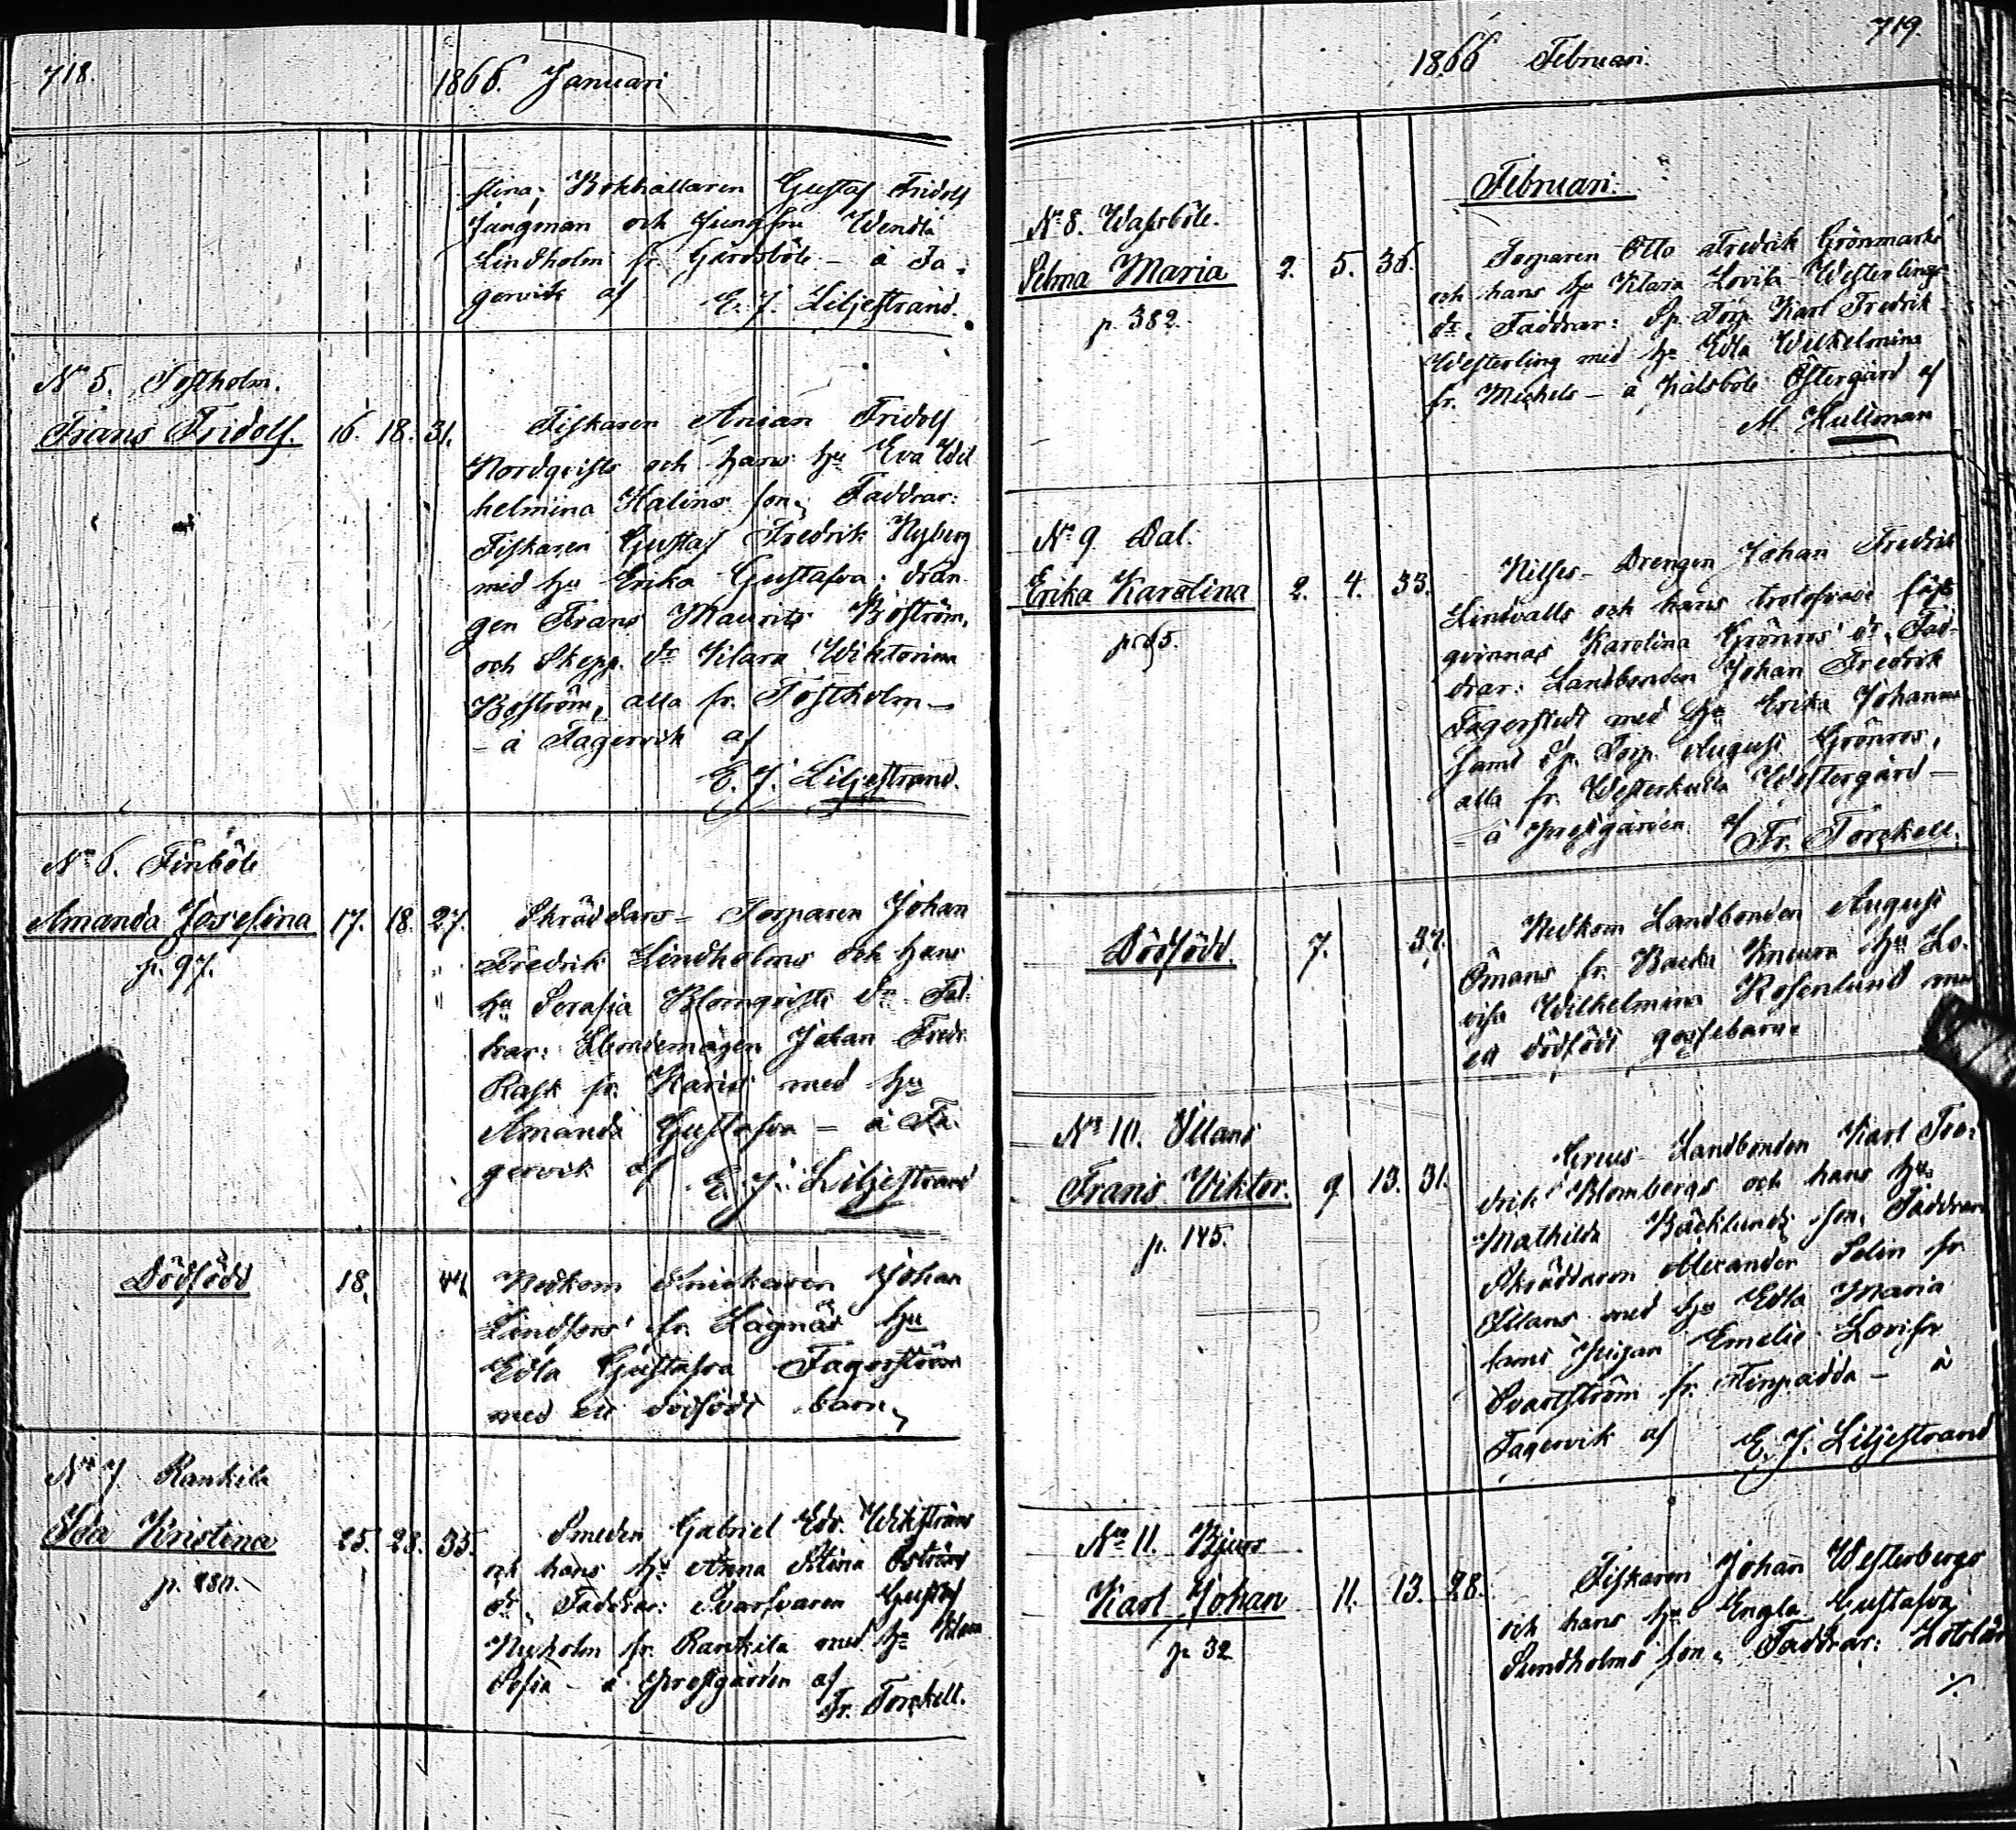 718.
1866. Januari
stina; Bokhållaren Gustaf Fridolf
Jungman och Jungfru Wendla
Lindholm fr. Gerdsböle – å Fa-
gervik af E. J. Liljestrand.
No 5. Tostholm.
Frans Fridolf. 16. 18. 31.
Fiskaren Anian Fridolf
Nordqvists och hans hu Eva Wil
helmina Halins son; Faddrar:
Fiskaren Gustaf Fredrik Nyberg
med hu Erika Gustafva; drän-
gen Frans Maurits Boström,
och Skepp. dr Klara Wiktorina
Boström, alla fr. Tostholm –
– å Fagervik af
E. J. Liljestrand.
No 6. Finböle
Amanda Josefina 17. 18. 27.
p. 97.
Skräddars- Torparen Johan
Fredrik Lindholms och hans
hu Serafia Blomqvists dr. Fad-
drar: Johan Fredr.
Rask fr. Karis med hu
Amanda Gustafva – å Fa-
gervik af E. J. Liljestrand
Dödfödd 18. 44
Nedkom Snickaren Johan
Lindfors' fr. Lågnäs hu
Edla Gustafva Fagerström
med ett dödfödt barn.
No 7 Rankila
Ida Kristina 25. 28. 35.
Smeden Gabriel Edv. Wikströms
och hans hu Anna Stina Öströms
dr. Faddrar: Svarfvaren Gustaf
Nyholm fr. Rankila med hu Klara
Sofia – å Prostgården af
Fr. Torckell.
719.
1866 Februari.
Februari.
No 8. Wassböle.
Selma Maria 2. 5. 36.
p. 382.
Torparen Otto Fredrik Grönmarks
och hans hu Klara Lovisa Westerlings
dr. Faddrar: Sp. Torp. Karl Fredrik
Westerling med hu Edla Wilhelmina
fr. Michels – å Kälsböle Östergård af
M. Hullman
No 9. Dal.
Erika Karolina 2. 4. 33.
Nilses- Drengen Johan Fredrik
Lindvalls och hans trolofvade fäst-
qvinnas Karolina Grönros' dr. Fad-
drar: Landbonden Johan Fredrik
Fagerstedt med hu Erika Johanna
samt Sp. Torp. August Grönros,
alla fr. Westerkulla Westergård –
– å Prestgården af
Fr. Torckell.
Dödfödd. 7. 37.
Nedkom Landbonden August
Ömans fr. Backa hu Lo-
visa Wilhelmina Rosenlund med
ett dödfödt gossebarn.
No 10. Illans
Frans Viktor. 9 13. 31.
p. 145.
Grius- Landbonden Karl Fre-
drik Blombergs och hans hu
Mathilda Bäcklunds son, Faddrar
Skräddaren Alexander Selin fr.
Illans med hu Edla Maria
samt Pigan Emelie Lovisa
Svartström fr. Finpadda – å
Fagervik af E. J. Liljestrand
No 11. Bjurs
Karl Johan 11. 13. 28.
p. 32
Fiskaren Johan Westerbergs
och hans hu Engla Gustafva
Sundholms son. Faddrar: Lotslär
./.